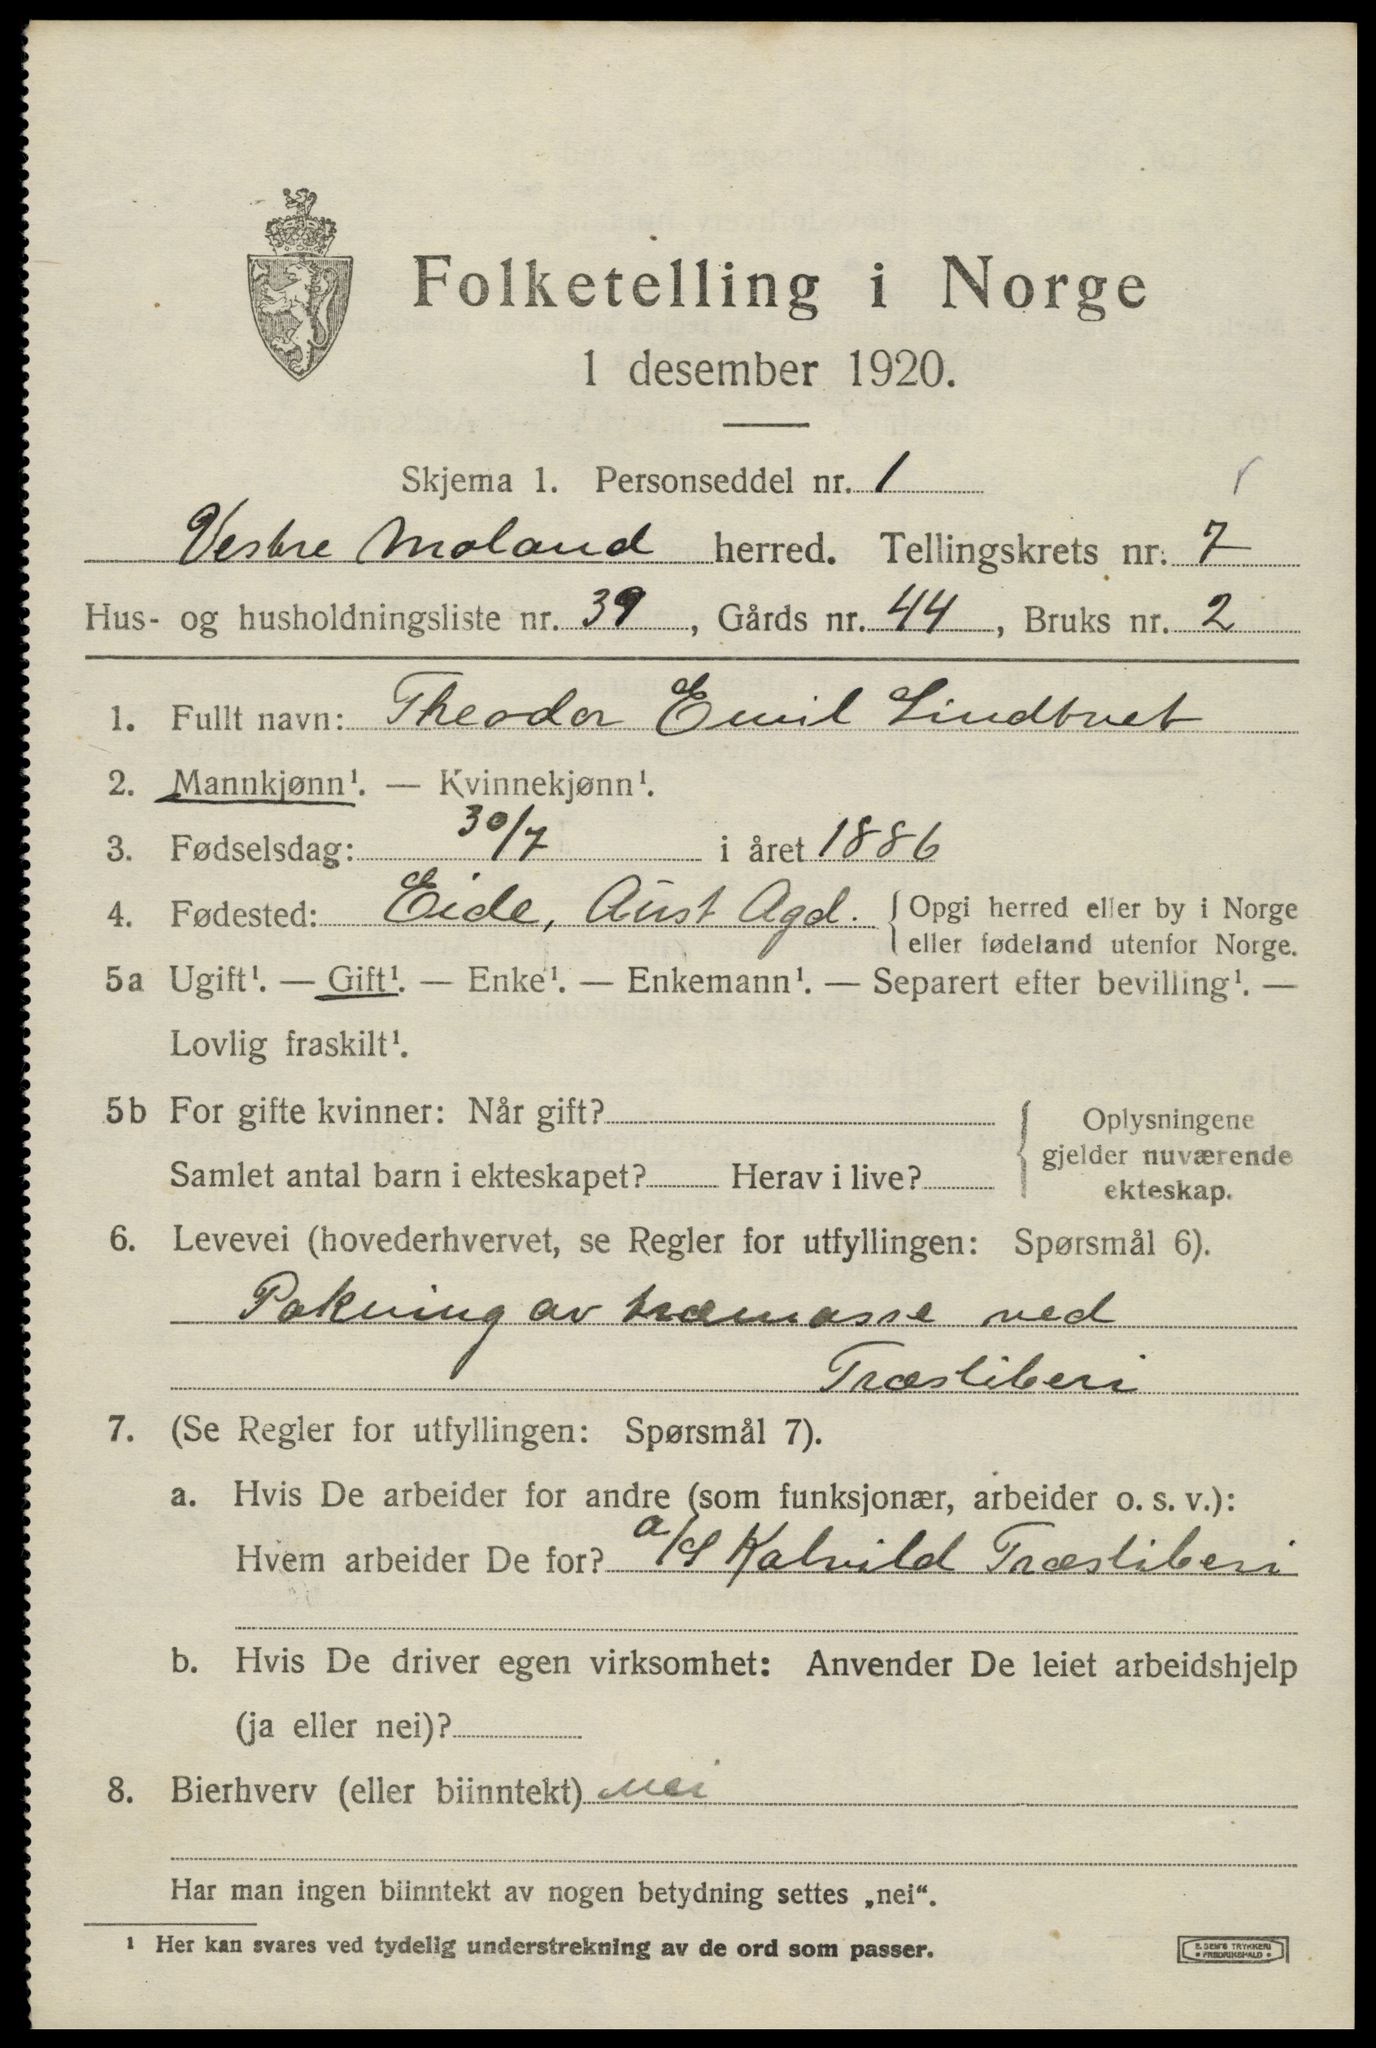 Folketelling i Norge
1 desember 1920.
Skjema 1. Personseddel nr. 1
Vestre Moland herred. Tellingskrets nr. 7
Hus- og husholdningsliste nr. 39, Gårds nr. 44, Bruks nr. 2
1. Fullt navn: Theodor Emil Lindtvet
2. Mannkjønn¹. — Kvinnekjønn¹.
3. Fødselsdag: 30/7 i året 1886
4. Fødested: Eide, Aust Agd. {Opgi herred eller by i Norge
eller fødeland utenfor Norge.
5a Ugift¹. — Gift¹. — Enke¹. — Enkemann¹. — Separert efter bevilling¹. —
Lovlig fraskilt¹.
5b For gifte kvinner: Når gift?
Samlet antal barn i ekteskapet? Herav i live?
Oplysningene
gjelder nuværende
ekteskap.
6. Levevei (hovederhvervet, se Regler for utfyllingen: Spørsmål 6).
Pakning av træmasse ved
Træsliberi
7. (Se Regler for utfyllingen: Spørsmål 7).
a. Hvis De arbeider for andre (som funksjonær, arbeider o. s. v.):
Hvem arbeider De for? a/S Kalvild Træsliberi
b. Hvis De driver egen virksomhet: Anvender De leiet arbeidshjelp
(ja eller nei)?
8. Bierhverv (eller biinntekt) nei
Har man ingen biinntekt av nogen betydning settes „nei“.
¹ Her kan svares ved tydelig understrekning av de ord som passer.
E. SEM'S TRYKKERI
• FREDRIKSHALD •